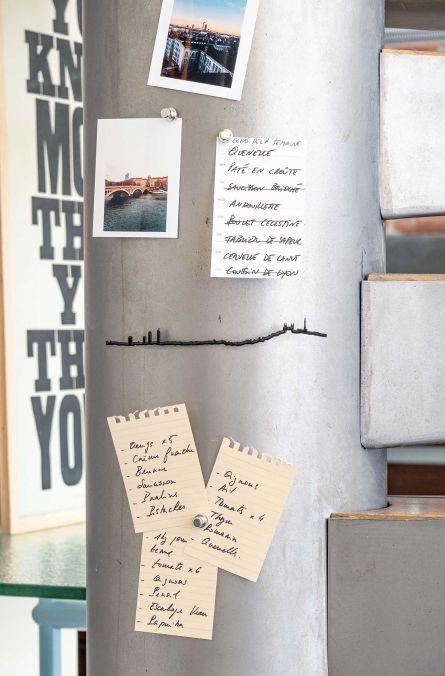 Y
KN
MO
TH
Y
TH
YO
DE LA SEMAINE
QUENELLE
PATÉ EN CROÛTE
SAUCISSON BRIOCHÉ
ANDOUILLETTE
POULET CELESTINE
TABLIER DE SAPEUR
CERVELLE DE CANUT
COUSSIN DE LYON
- Oeufs x5
- Crème fraiche
- Beurre
- Saucisson
- Pralines
- Pistaches
- Oignons
- Ail
- Tomates x 4
- Thym
- Romarin
- Quenelles.
- 1kg
terre
- tomates x6
- Oignons
- Persil
- Escalope Veau
- Paprika